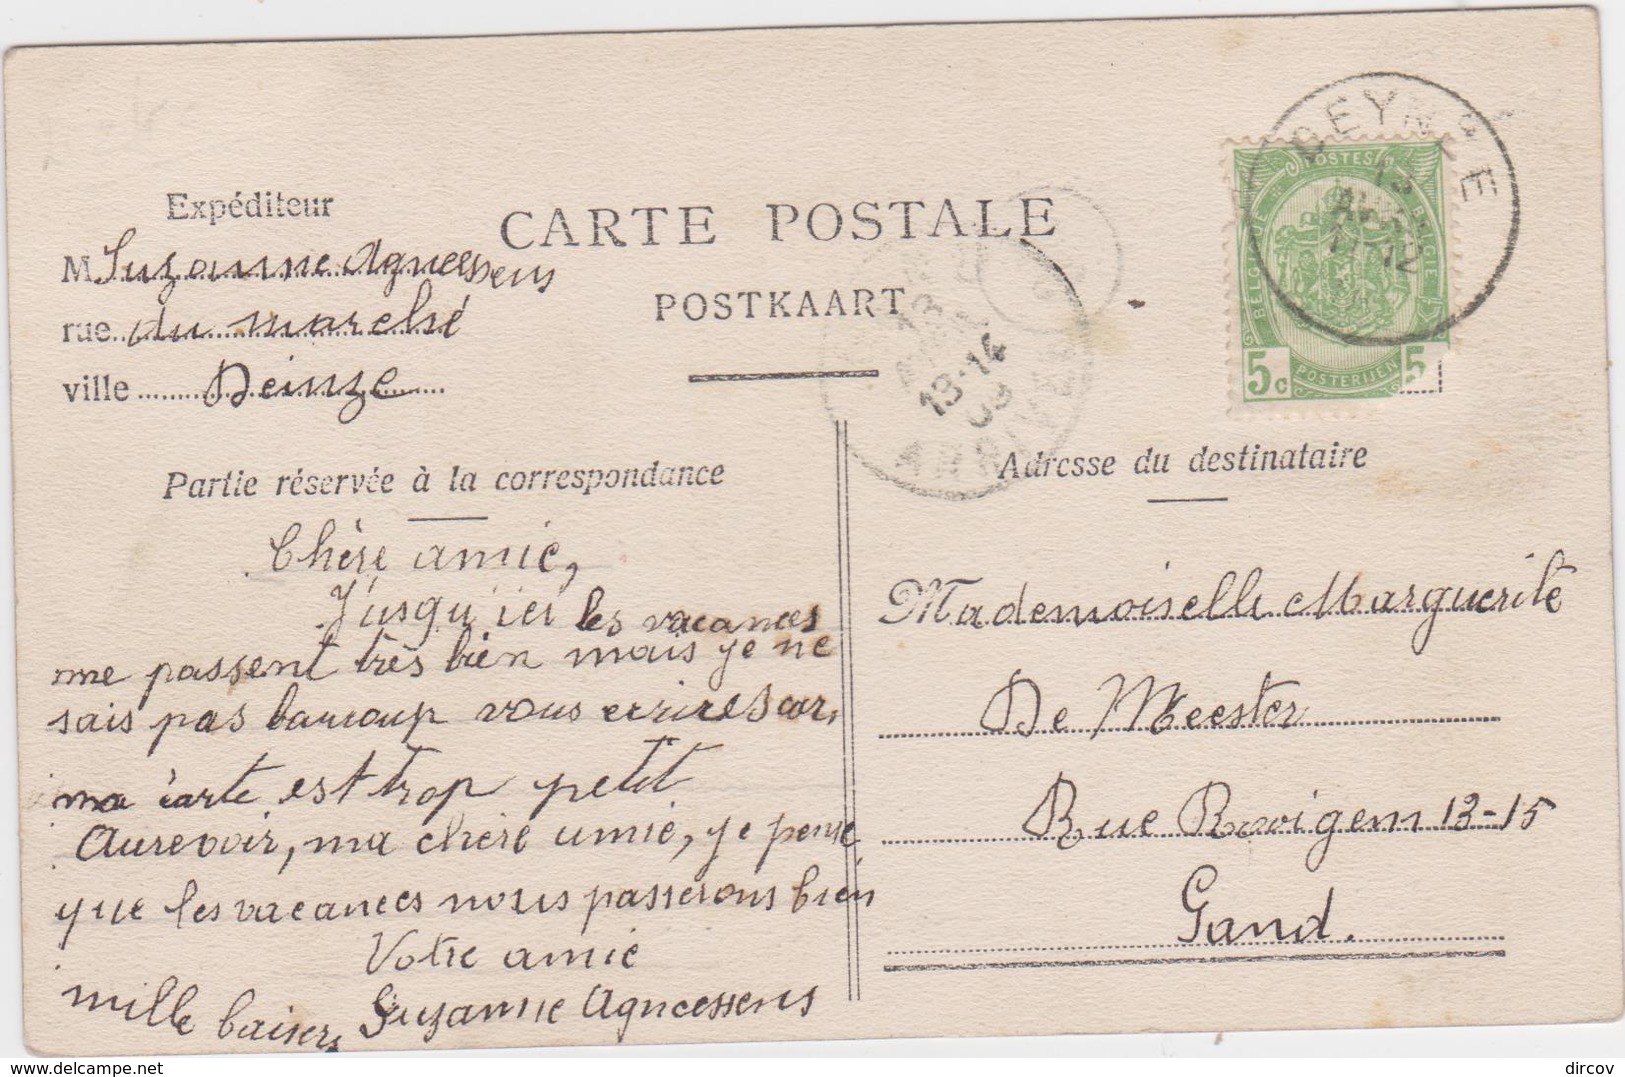 Expéditeur
M Suzanne Agneessens
rue du marché
ville Deinze
CARTE POSTALE
POSTKAART
DEYNZE
13
12
POSTES
BELGIQUE
BELGIË
5c
POSTERIJEN
5
13-14
09
Partie réservée à la correspondance
Chère amie,
J'usqu'ici les vacances
me passent très bien mais je ne
sais pas baucoup vous ecrires car,
ma carte est trop petit
Aurevoir, ma chère amie, je pense
que les vacances nous passerons bien
Votre amie
mille baisers Suzanne Agneessens
Adresse du destinataire
Mademoiselle Marguerite
De Meester
Rue Rooigem 13-15
Gand.
delcampe.net
dircov